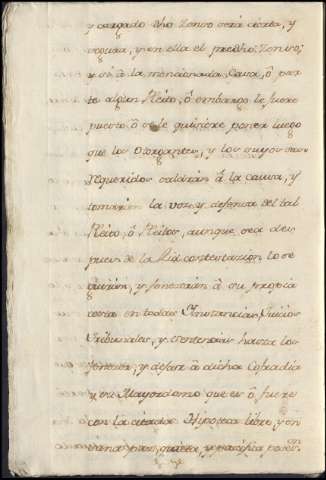 y cargado dho Zenso será cierta, y
segura, y en ella el predho Zenso;
y si à la mencionada Casa, ò par
te algun Pleito, ò embargo le fuere
puesto ò se le quisiere poner luego
que los Otorgantes, y los suyos sean
requeridos saldràn à la causa, y
tomaràn la voz, y defensa del tal
Pleito, ò Pleitos, aunque sea des
pues de la contestazion lo se
guiràn, y feneceràn à su propria
costa en todas Instancias, Juicios
Tribunales, y sentencias hasta los
fenecer, y dejar à dicha Cofradia
y su Mayordomo que es ò fuere
con la citada Hipoteca libre, y en
sana paz, quieta, y pacifica poses
on